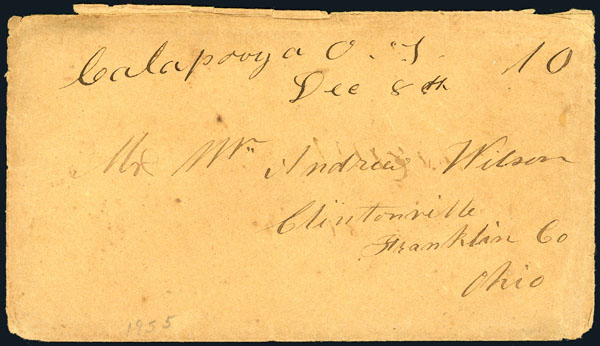 Calapooya O. T. 10
Dec 8th
Mr Wm Andrew Wilson
Clintonville
Franklin Co
Ohio
1955